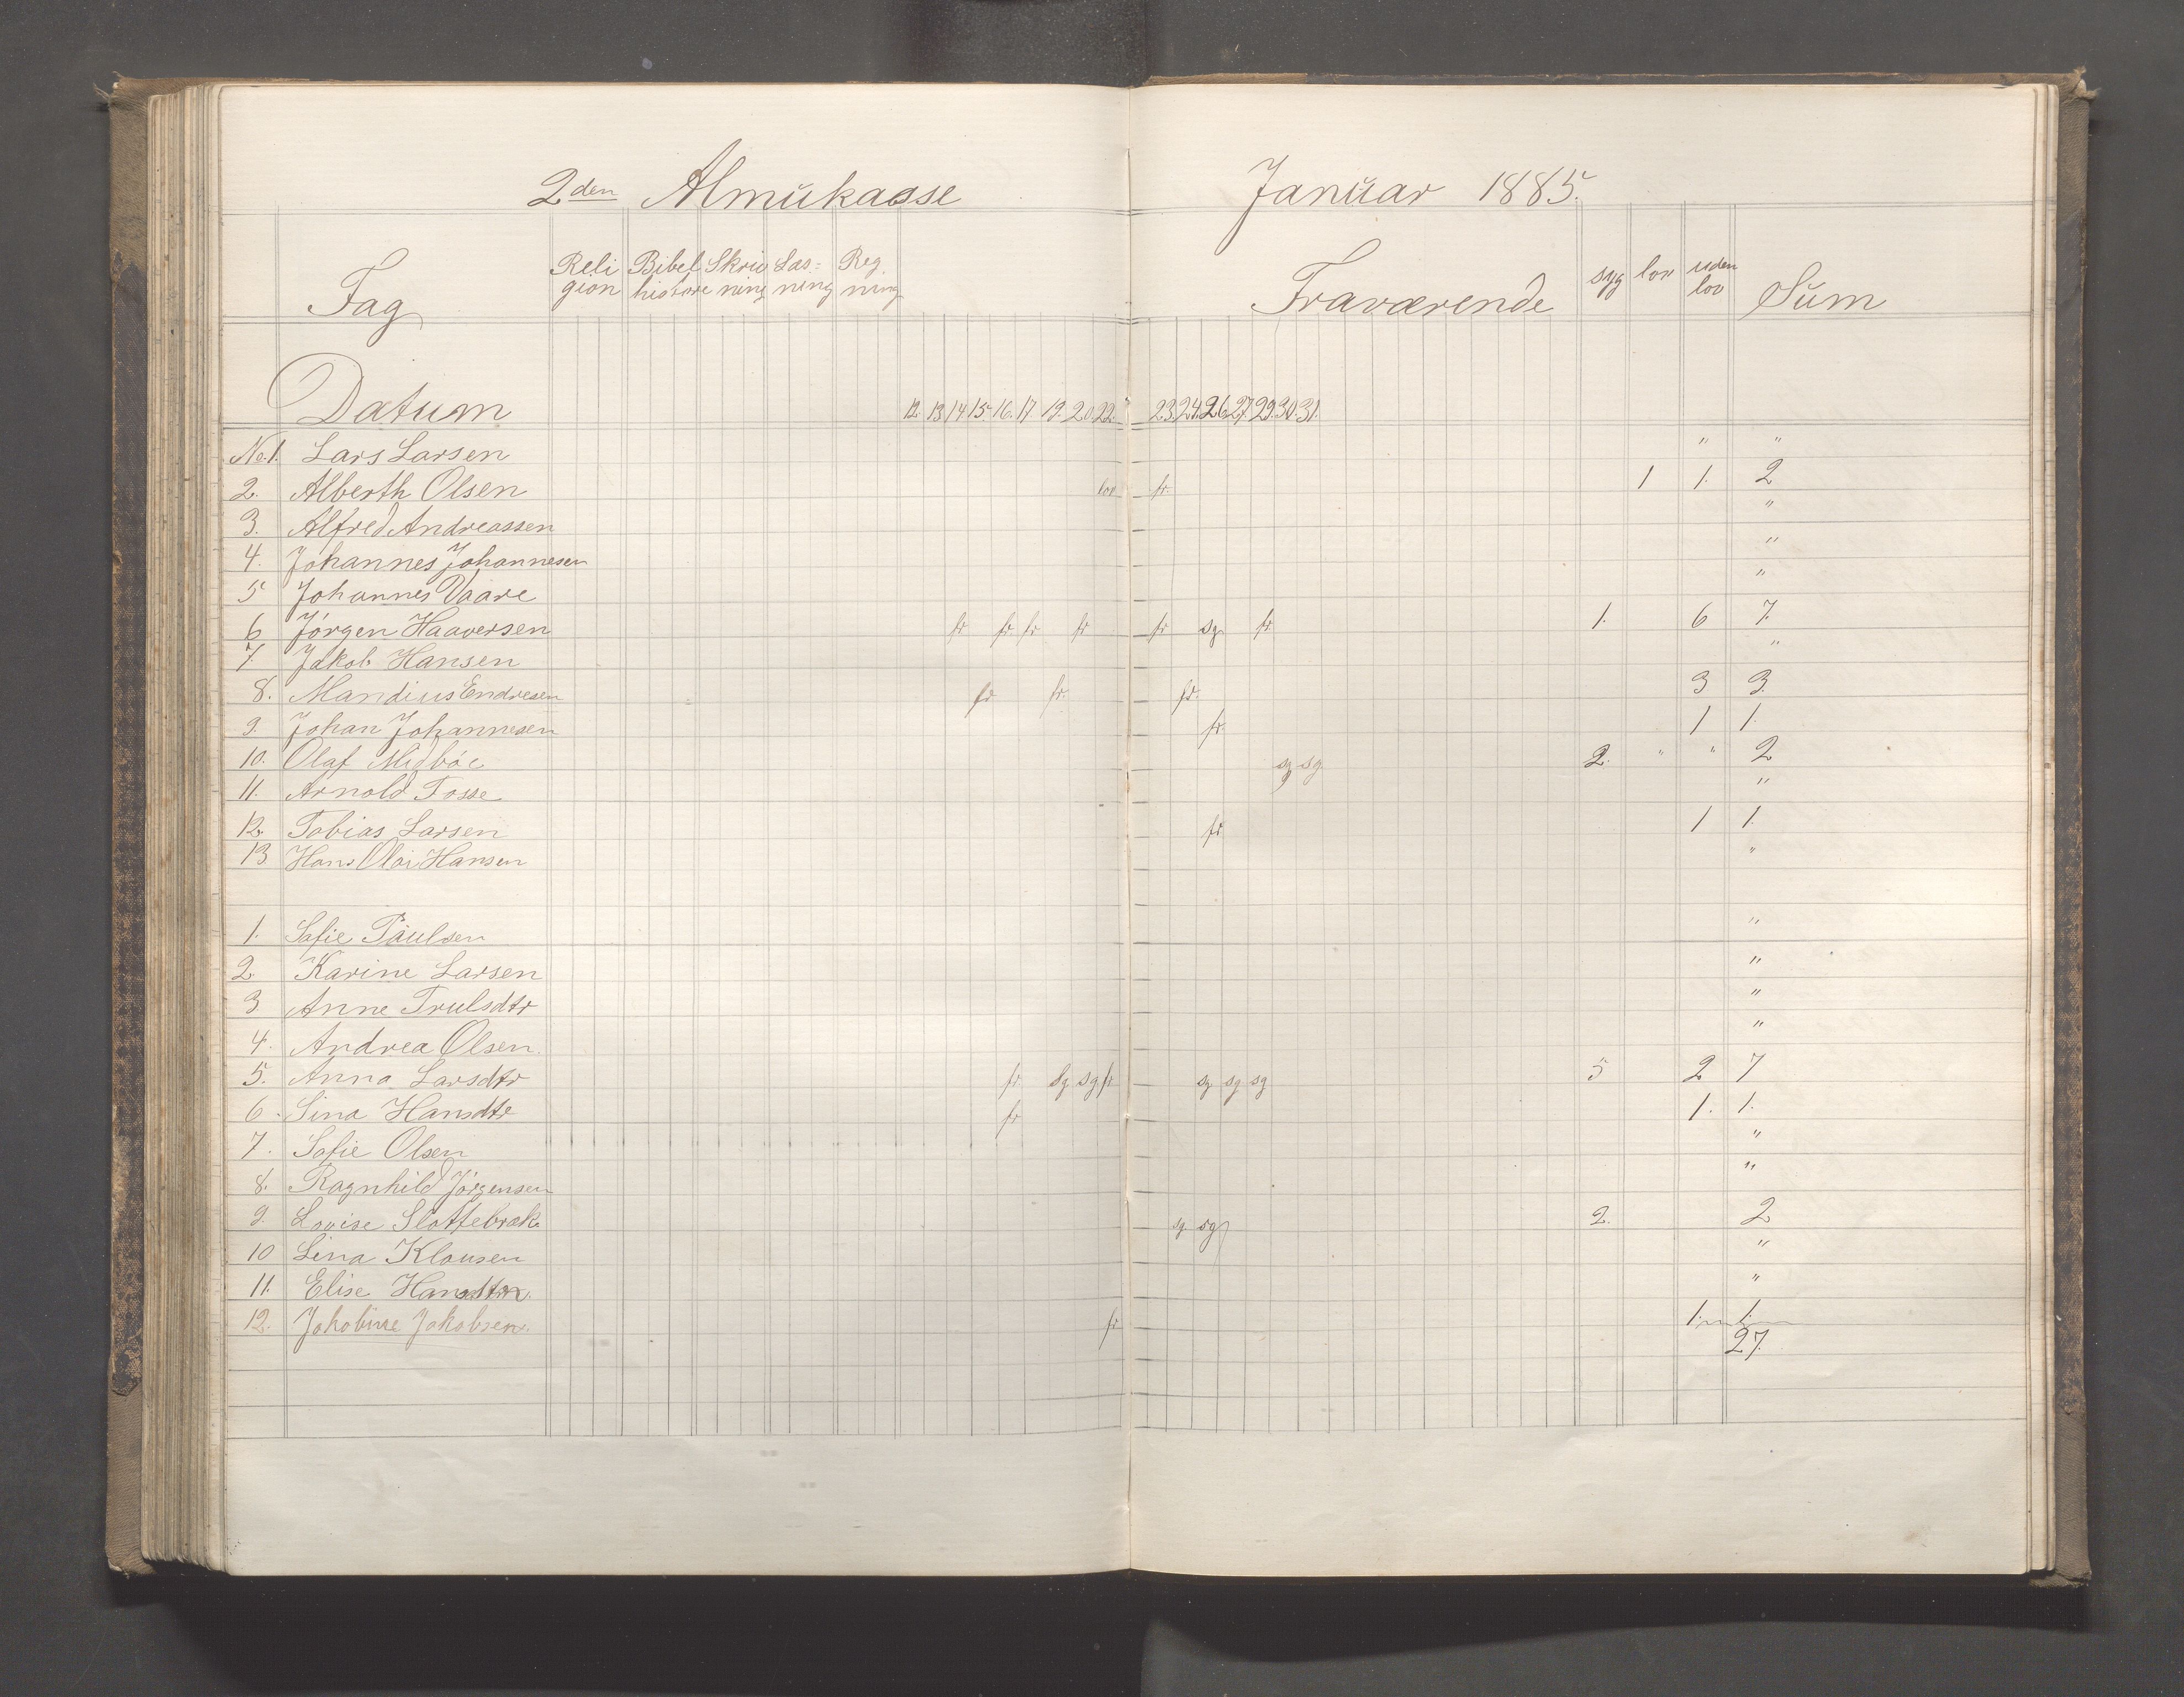 2den Almukasse Januar 1885.
Fag Reli Bibel Skriv Læs= Reg Fraværende syg lov uden Sum
gion historie ning ning ning lov
Datum 12. 13. 14 15. 16. 17. 19. 20. 22. 23. 24. 26. 27. 29. 30. 31.
No. 1. Lars Larsen " "
2. Alberth Olsen lov fr. 1 1. 2
3. Alfred Andreassen "
4. Johannes Johannesen "
5 Johannes Vaare "
6 Jörgen Haaversen fr fr fr fr fr sg. fr 1. 6 7.
7. Jakob Hansen "
8. Mandius Endresen fr fr. fr. 3 3.
9. Johan Johannesen fr. 1 1.
10. Olaf Midböe sg sg. 2. " " 2
11. Arnold Tosse "
12. Tobias Larsen fr 1 1.
13 Hans Olai Hansen "
1. Sofie Paulsen "
2. Karine Larsen "
3. Anne Trulsdtr "
4. Andrea Olsen. "
5. Anna Larsdtr fr sg sg fr sg sg sg 5 2 7
6. Sina Hansdtr fr 1. 1.
7. Sofie Olsen "
8. Ragnhild Jörgensen "
9. Lovise Slottebræk sg. sg 2. 2
10 Lina Klausen "
11. Elise Hansdtr. "
12. Jakobine Jakobsen. fr 1. 1.
27.